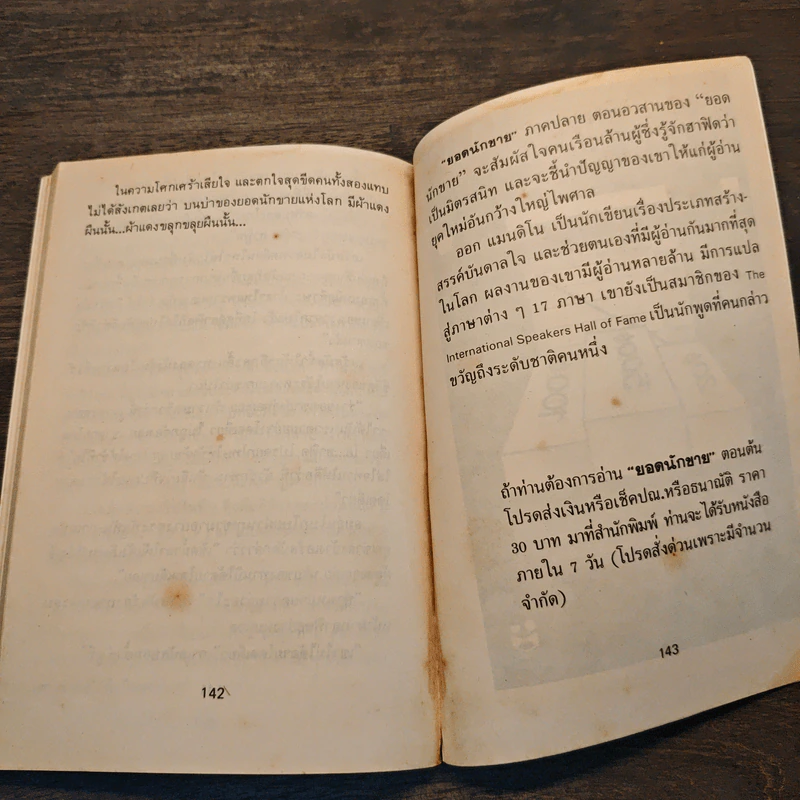 ในความโศกเศร้าเสียใจ และตกใจสุดขีดคนทั้งสองแทบ
ไม่ได้สังเกตเลยว่า บนบ่าของยอดนักขายแห่งโลก มีผ้าแดง
ผืนนั้น...ผ้าแดงขลุกขลุยผืนนั้น...
142
"ยอดนักขาย" ภาคปลาย ตอนอวสานของ "ยอด
นักขาย" จะสัมผัสใจคนเรือนล้านผู้ซึ่งรู้จักฮาฟิดว่า
เป็นมิตรสนิท และจะชี้นำปัญญาของเขาให้แก่ผู้อ่าน
ยุคใหม่อันกว้างใหญ่ไพศาล
ออก แมนดิโน เป็นนักเขียนเรื่องประเภทสร้าง-
สรรค์บันดาลใจ และช่วยตนเองที่มีผู้อ่านกันมากที่สุด
ในโลก ผลงานของเขามีผู้อ่านหลายล้าน มีการแปล
สู่ภาษาต่าง ๆ 17 ภาษา เขายังเป็นสมาชิกของ The
International Speakers Hall of Fame เป็นนักพูดที่คนกล่าว
ขวัญถึงระดับชาติคนหนึ่ง
ถ้าท่านต้องการอ่าน "ยอดนักขาย" ตอนต้น
โปรดส่งเงินหรือเช็คปณ.หรือธนาณัติ ราคา
30 บาท มาที่สำนักพิมพ์ ท่านจะได้รับหนังสือ
ภายใน 7 วัน (โปรดสั่งด่วนเพราะมีจำนวน
จำกัด)
143